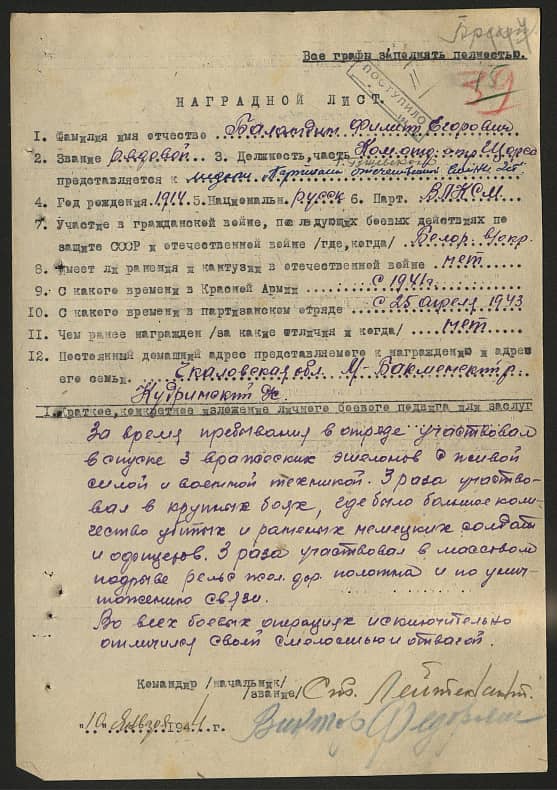 Все графы заполнять полностью.
ПОСТУПИЛО
НАГРАДНОЙ ЛИСТ.
1. Фамилия имя отчество Баландин Филип Егорович
2. Звание рядовой 3. Должность, часть Ком. отд. отр. Щорса
представляется к медали "Партизан отечественной войны" 2 ст.
4. Год рождения 1914. 5. Национальн. русск 6. Парт. ВЛКСМ
7. Участие в гражданской войне, последующих боевых действиях по
защите СССР и отечественной войне /где, когда/ Белор.
8. Имеет ли ранения и контузии в отечественной войне нет
9. С какого времени в Красной Армии с 1941 г.
10. С какого времени в партизанском отряде с 25 апреля 1943
11. Чем ранее награжден /за какие отличия и когда/ нет
12. Постоянный домашний адрес представляемого к награждению и адрес
его семьи. Чкаловская обл.
I. Краткое, конкретное изложение личного боевого подвига или заслуг
За время пребывания в отряде участвовал
в спуске 3 вражеских эшелонов с живой
силой и военной техникой. 3 раза участво-
вал в крупных боях, где было большое коли-
чество убитых и раненых немецких солдат
и офицеров. 3 раза участвовал в массовом
подрыве рельс жел. дор. полотна и по унич-
тожению связи.
Во всех боевых операциях исключительно
отличился своей смелостью и отвагой.
Командир /начальник/
/звание/ Ст. Лейтенант.
"10" Января 194 г.